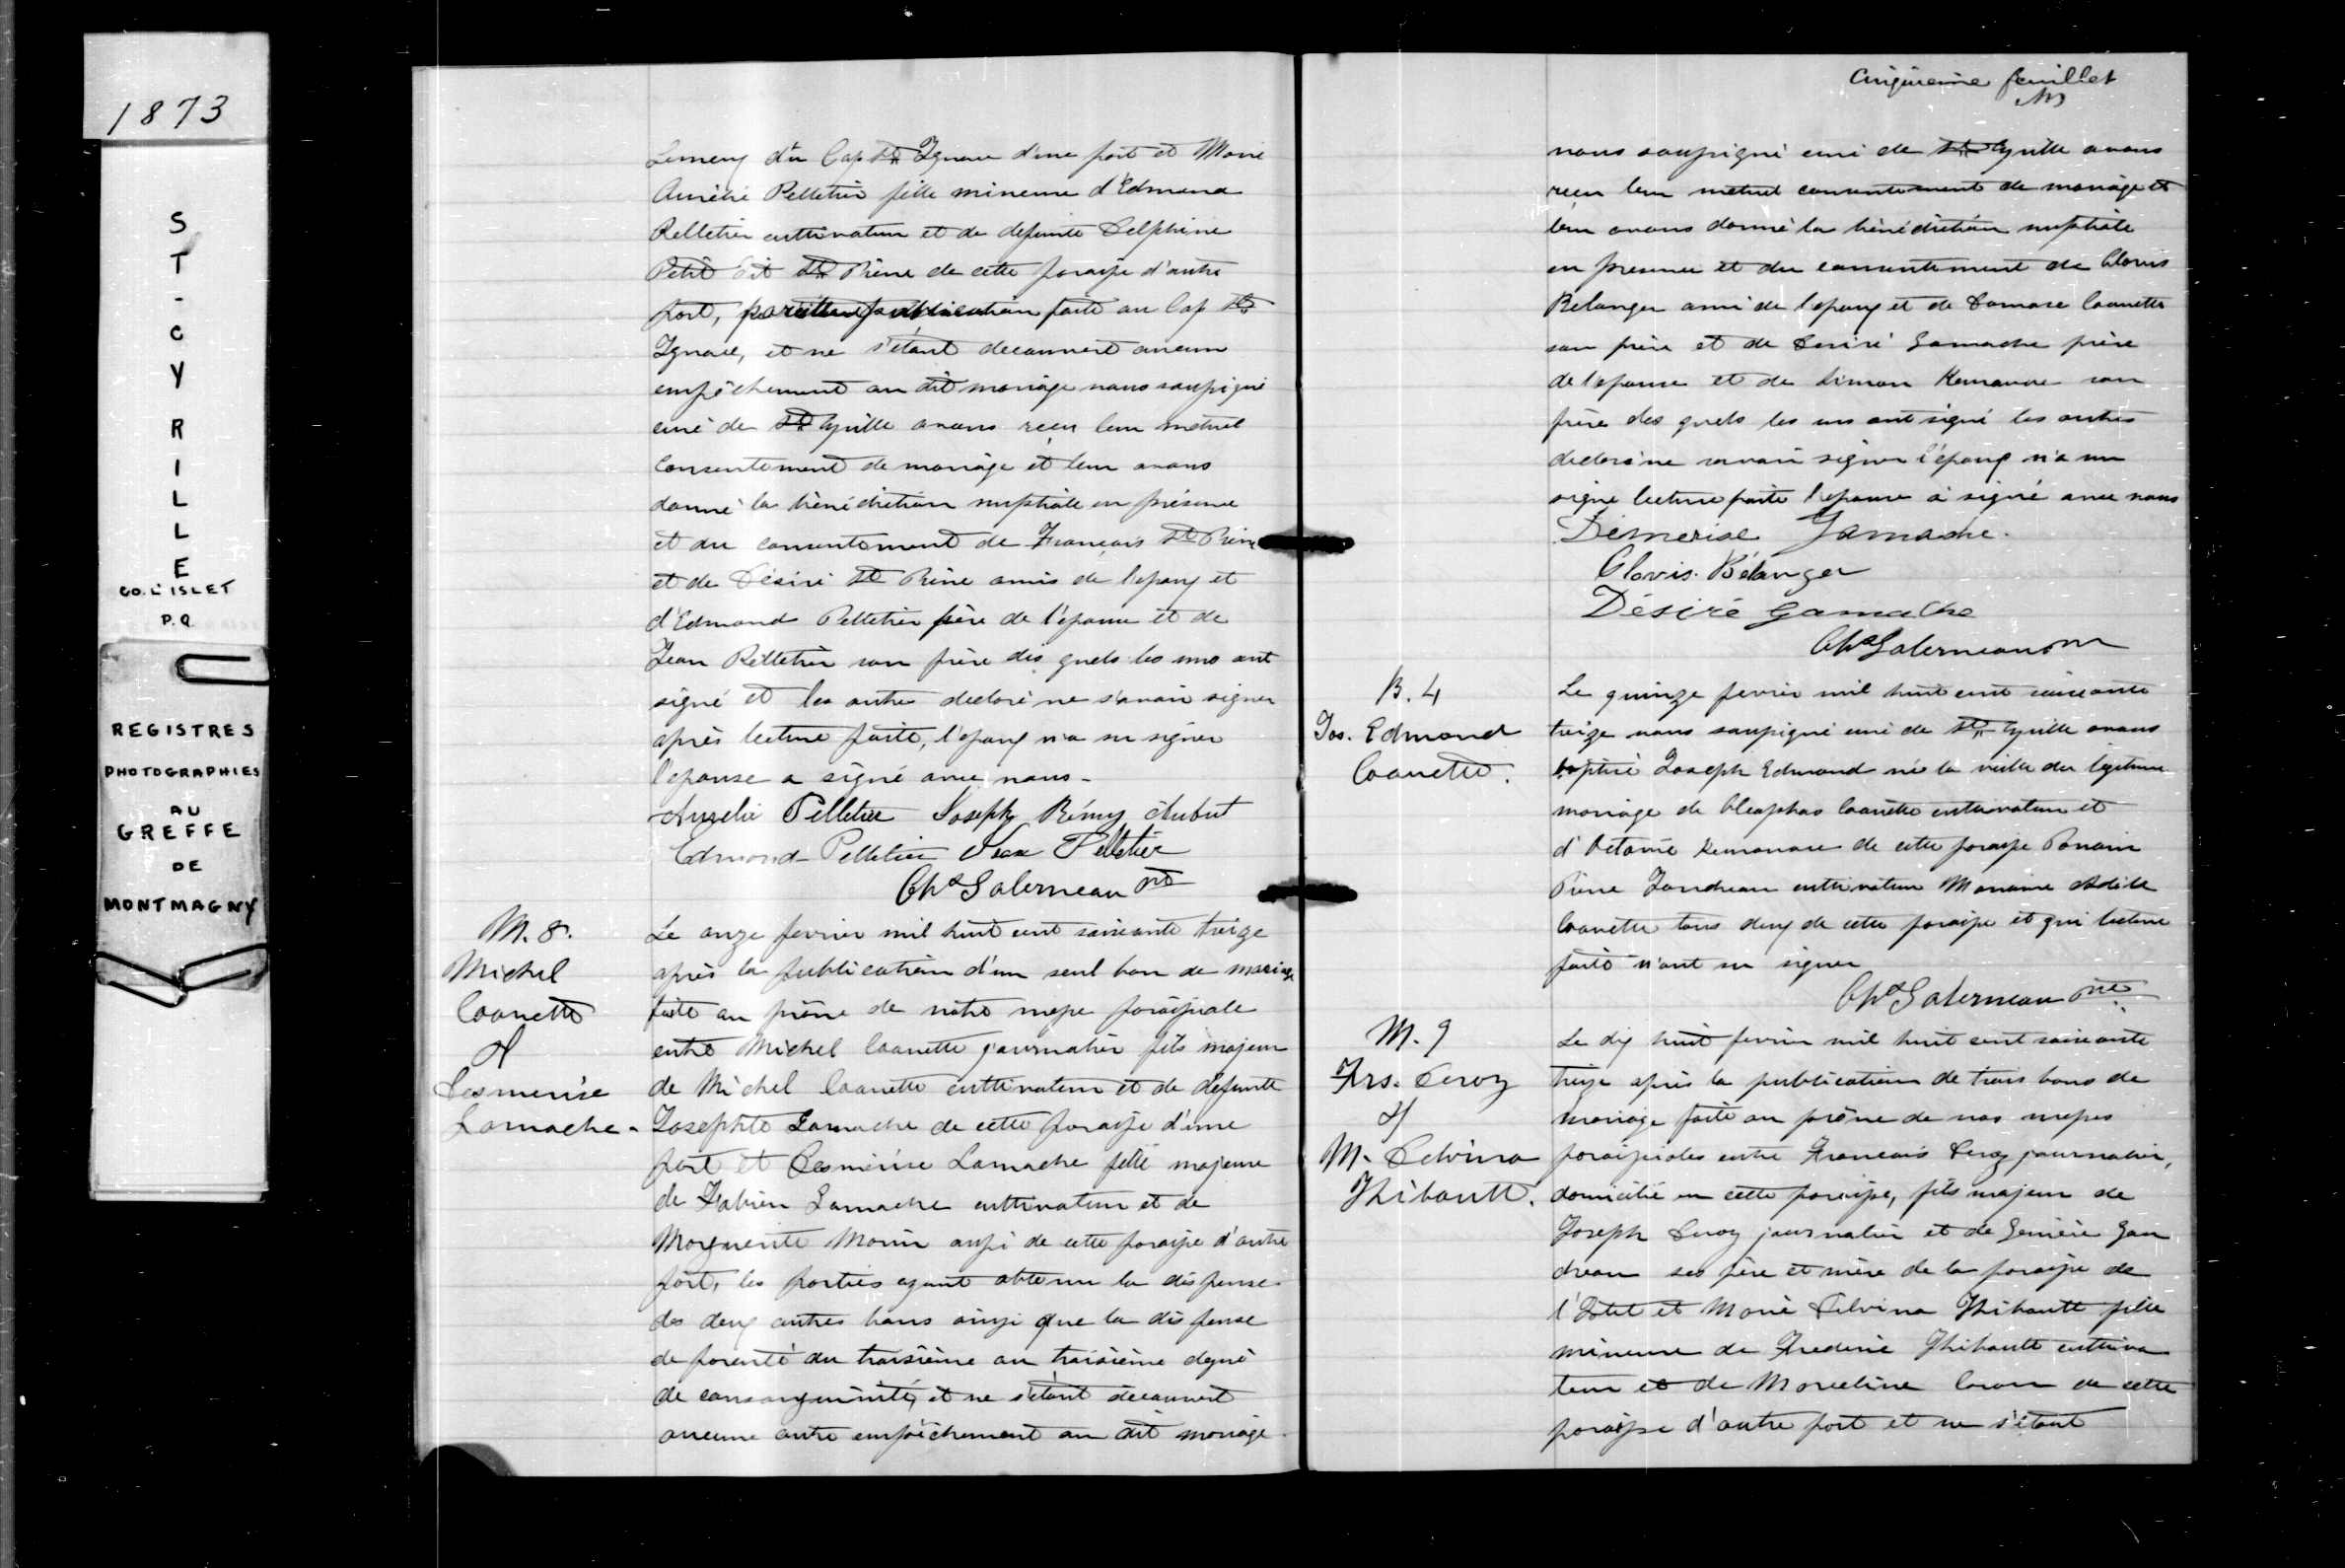 1873
ST-CYRILLE
CO. L'ISLET
P.Q.
REGISTRES
PHOTOGRAPHIES
AU
GREFFE
DE
MONTMAGNY
du Cap St Ignace d'une part et Marie
Aurélie Pelletier fille mineure d'Edmond
Pelletier cultivateur et de defunte Delphine
Petit dit St Pierre de cette paroisse d'autre
part, pareille publication faite au Cap St
Ignace, et ne s'étant decouvert aucun
empêchement au dit mariage nous soussigné
curé de St Cyrille avons reçu leur mutuel
consentement de mariage et leur avons
donné la bénédiction nuptiale en présence
et du consentement de François St Pierre
et de Désiré St Pierre amis de l'epoux et
d'Edmond Pelletier père de l'épouse et de
Jean Pelletier son frère des quels les uns ont
signé et les autres declaré ne savoir signer
après lecture faite, l'epoux n'a su signer
l'epouse a signé avec nous-
Aurelie Pelletier Joseph Rémy
Edmond Pelletier Jean Pelletier
Chs Galerneau ptre
M. 8.
Michel
Caouette
&
Desmerise
Gamache.
Le onze fevrier mil huit cent soixante treize
après la publication d'un seul ban de mariage
faite au prône de notre messe paroissiale
entre Michel Caouette journalier fils majeur
de Michel Caouette cultivateur et de defunte
Josephte Gamache de cette paroisse d'une
part et Desmérise Gamache fille majeure
de Fabien Gamache cultivateur et de
Marguerite Morin aussi de cette paroisse d'autre
part, les parties ayant obtenu la dispense
des deux autres bans ainsi que la dispense
de parenté du troisième au troisième degré
de consanguinité, et ne s'étant decouvert
aucune autre empêchement au dit mariage
Cinquieme feuillet
nous soussigné curé de St Cyrille avons
reçu leur mutuel consentement de mariage et
leur avons donné la bénédiction nuptiale
en presence et du consentement de Clovis
Belanger ami de l'epoux et de Damase Caouette
son frère et de Desiré Gamache frère
de l'epouse et de Simon son
frère des quels les uns ont signé les autres
declaré ne savoir signer l'époux n'a su
signe lecture faite l'epouse a signé avec nous
Démerise Gamache.
Clovis Bélanger
Désiré Gamache
Chs Galerneau ptre
B. 4
Jos. Edmond
Caouette.
Le quinze fevrier mil huit cent soixante
treize nous soussigné curé de St Cyrille avons
baptisé Joseph Edmond né la veille du légitime
mariage de Cleophas Caouette cultivateur et
d'Octavie de cette paroisse Parrain
Pierre Jondreau cultivateur Marraine Adèle
Caouette tous deux de cette paroisse et qui lecture
faite n'ont su signer
Chs Galerneau ptre
M. 9
Frs. Leroy
&
M. Delvina
Thibault.
Le dix huit fevrier mil huit cent soixante
treize après la publication de trois bans de
mariage faite au prône de nos messes
paroissiales entre Francois Leroy journalier,
domicilié en cette paroisse, fils majeur de
Joseph Leroy journalier et de Gau
dreau ses père et mère de la paroisse de
l'Islet et Marie Delvina Thibault fille
mineure de Frederic Thibault cultiva
teur et de Marceline Caron de cette
paroisse d'autre part et ne s'étant